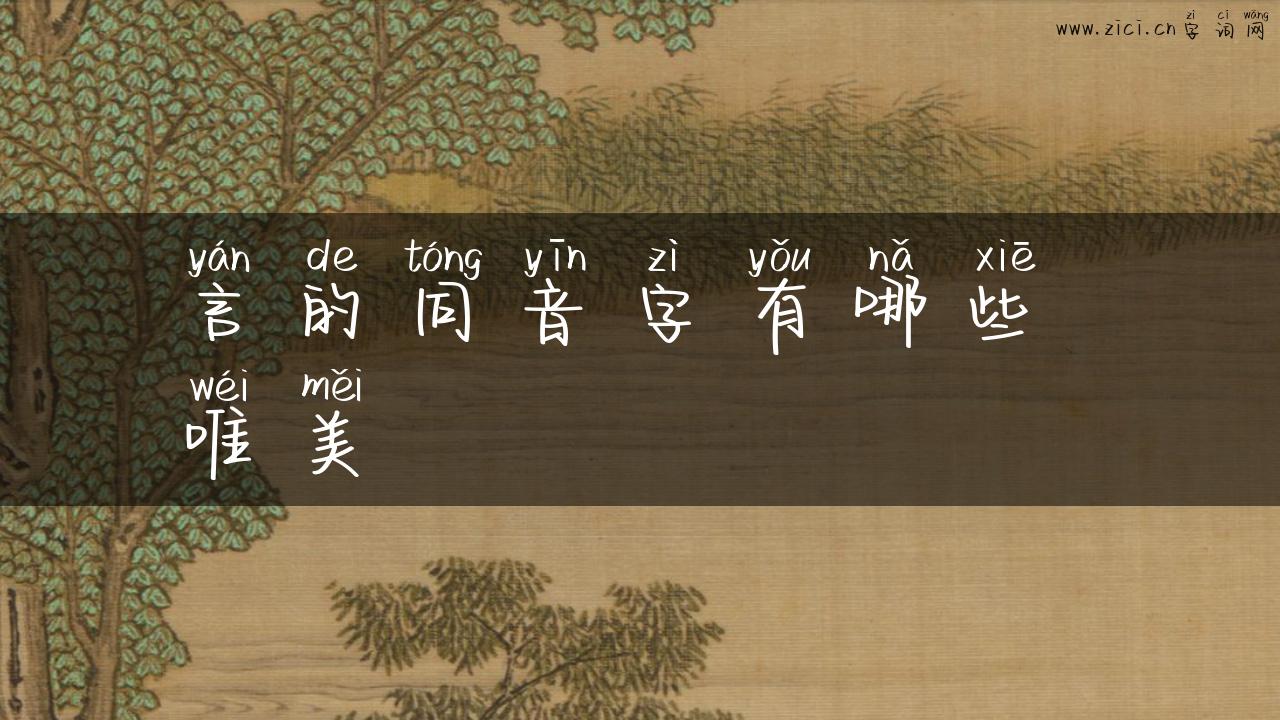 zì cí wǎng
www.zici.cn字词网
yán de tóng yīn zì yǒu nǎ xiē
言的同音字有哪些
wéi měi
唯美